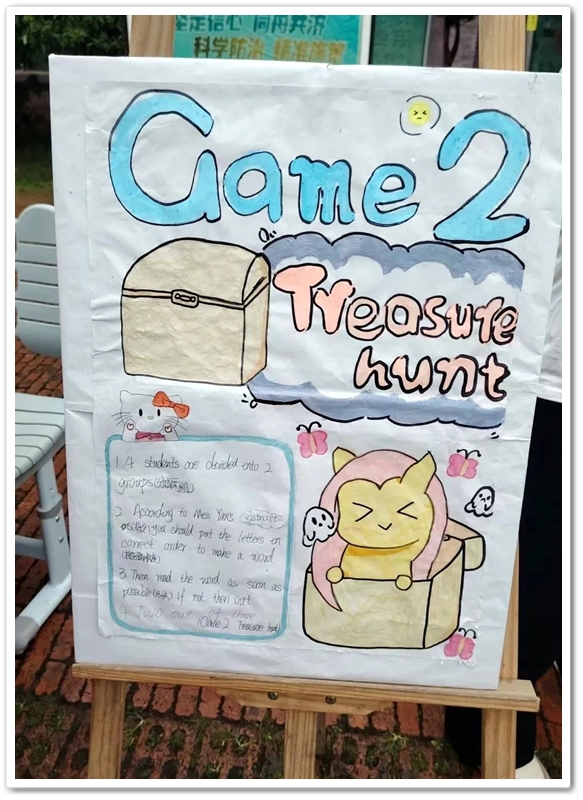 坚定信心 同舟共济
科学防治 精准施策
Game 2
Treasure
hunt
1. 4 students are divided into 2
groups
2. According to Miss Yan's
you should put the letters in
correct order to make a word
3. Then read the word as soon as
possible if not then out
4. Two out of three
(Game 2 Treasure hunt)